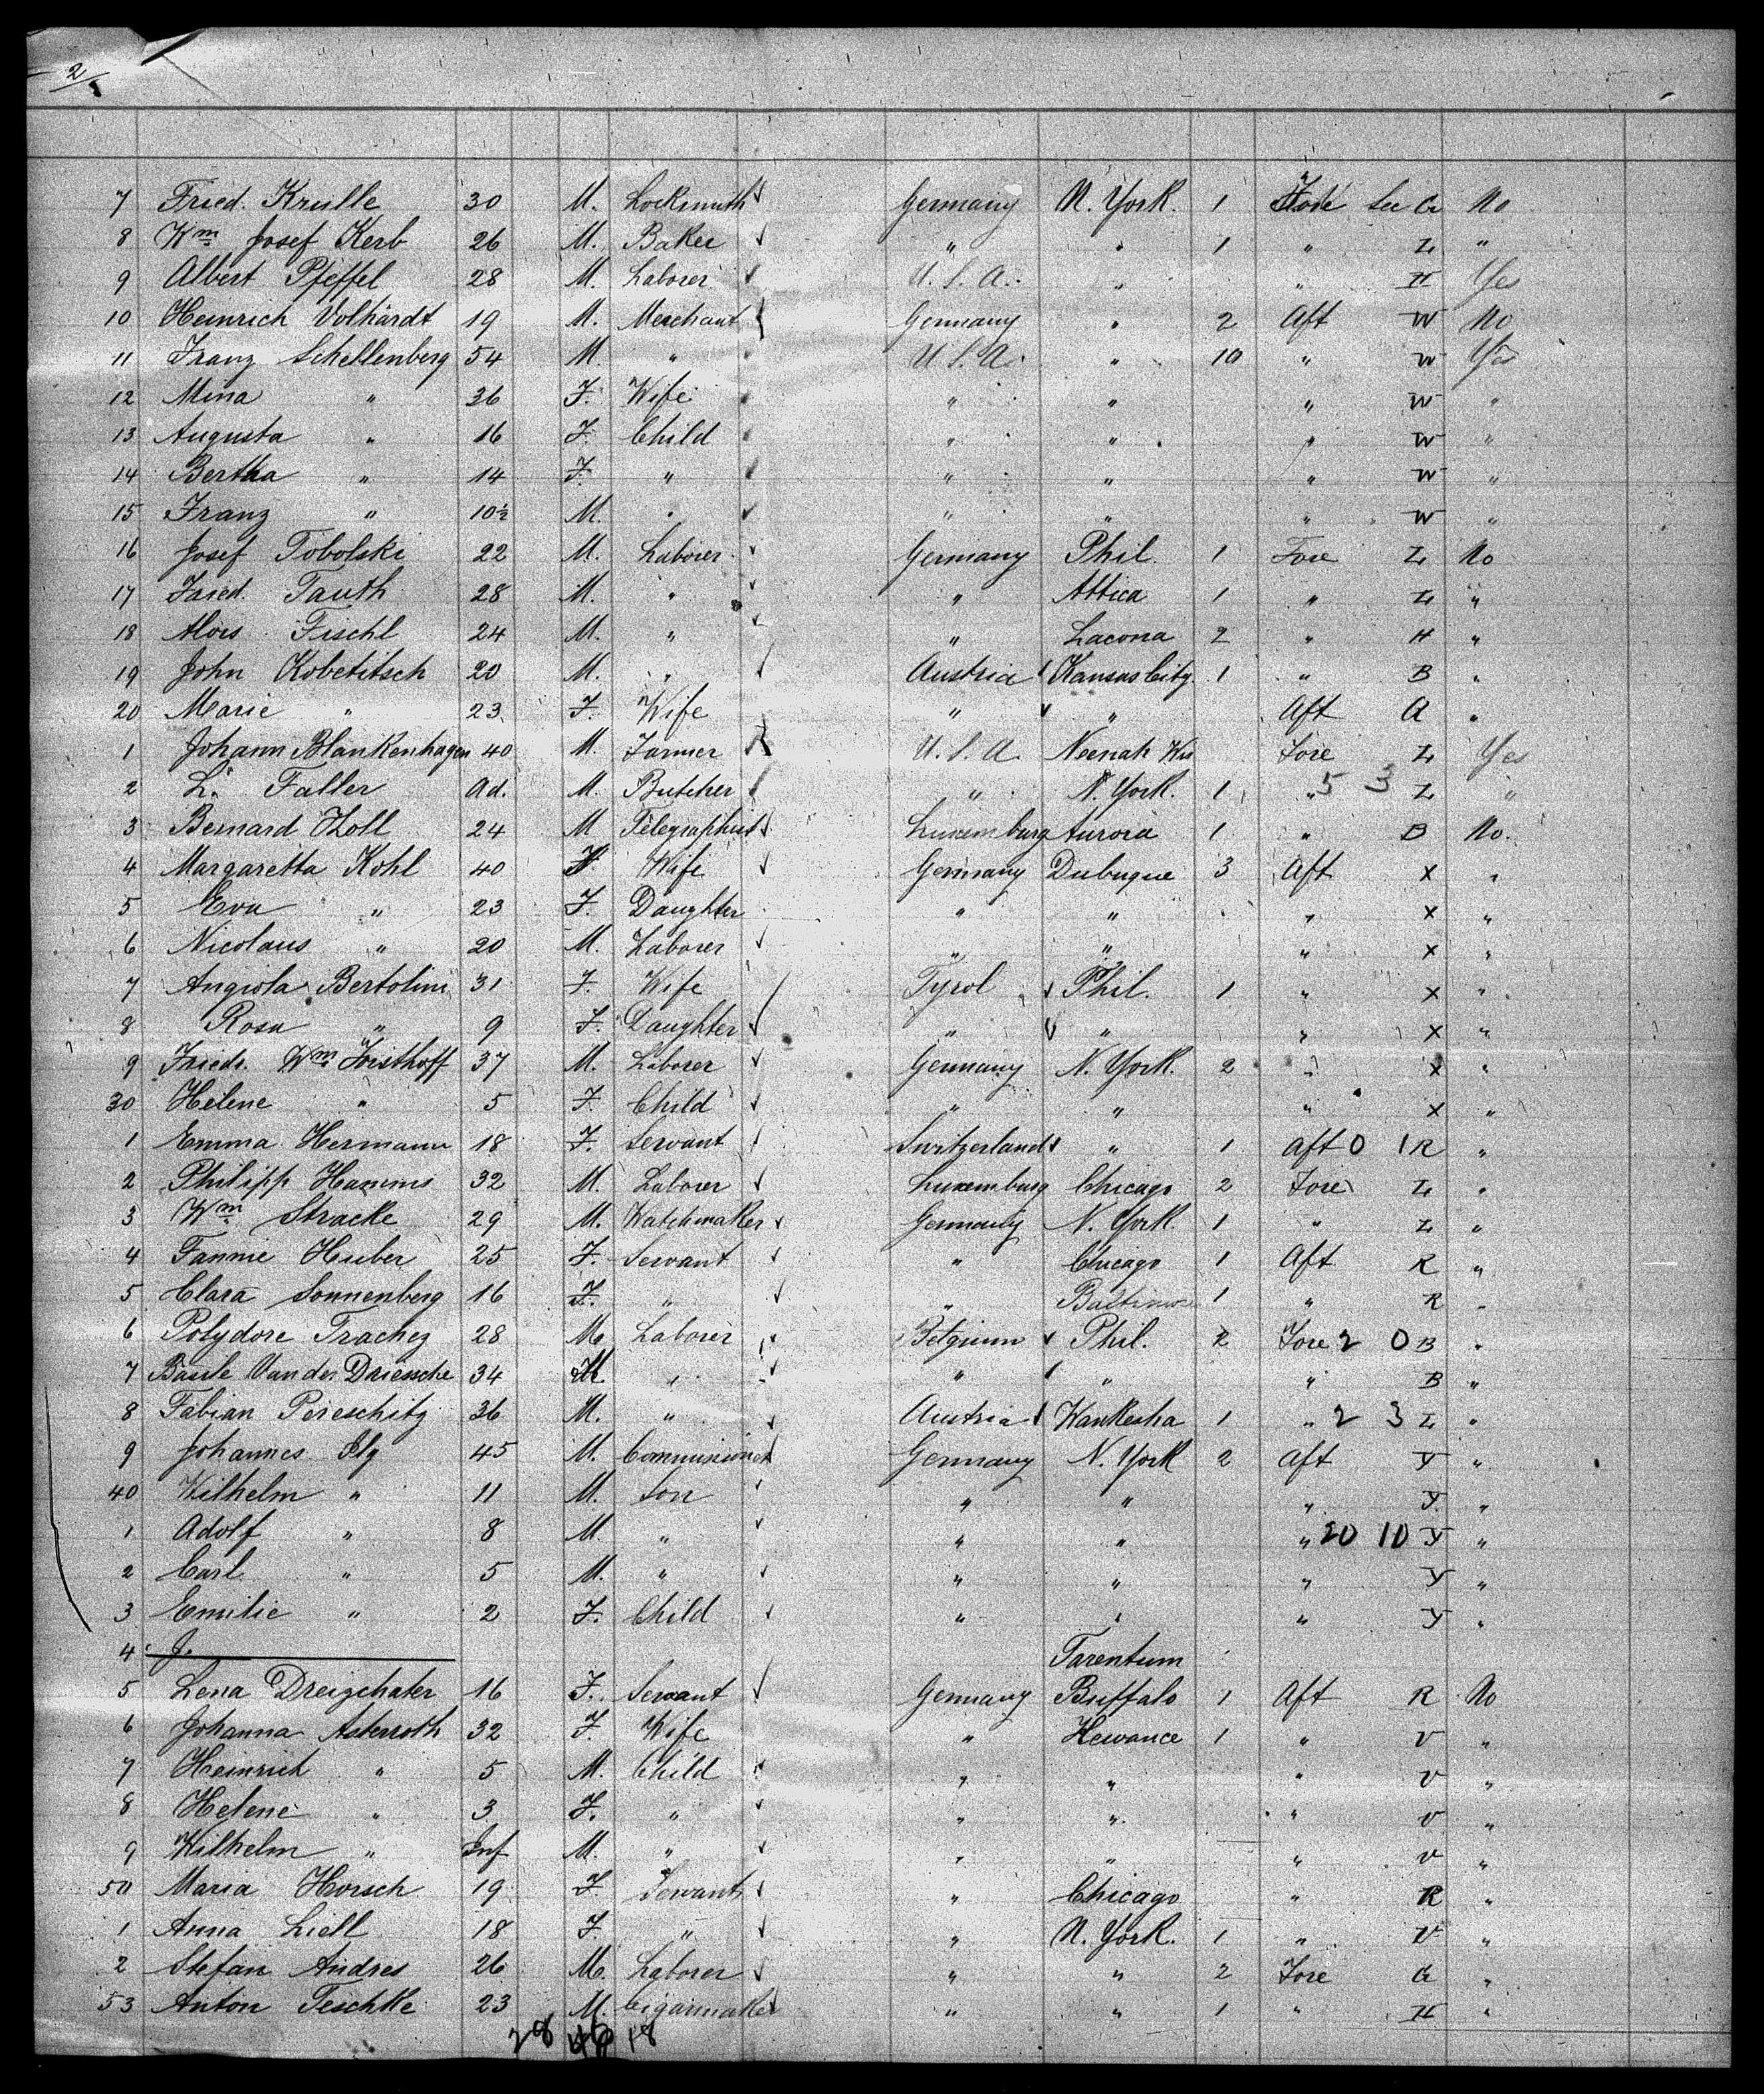 2
7 Fried. Krulle 30 M. Locksmith Germany N. York. 1 Fore Sec G No
8 Wm Josef Kerb 26 M. Baker " " 1 " L "
9 Albert Pfeffel 28 M. Laborer U.S.A. " " H Yes
10 Heinrich Volhardt 19 M. Merchant Germany " 2 Aft W No
11 Franz Schellenberg 54 M " U.S.A. " 10 " W Yes
12 Mina " 36 F. Wife " " " W "
13 Augusta " 16 F. Child " " " W "
14 Bertha " 14 F. " " " " W "
15 Franz " 10½ M. " " " " W "
16 Josef Tobolski 22 M. Laborer Germany Phil. 1 Fore L No
17 Fried. Tauth 28 M. " " Attica 1 " L "
18 Alois Fischl 24 M. " " Lacona 2 " H "
19 John Kobetitsch 20 M. " Austria Kansas City. 1 " B "
20 Marie " 23 F. Wife " " Aft A "
1 Johann Blankenhagen 40 M. Farmer U.S.A. Neenah Wis Fore L Yes
2 L. Faller Ad. M. Butcher " N. York. 1 " 5 3 L "
3 Bernard Zoll 24 M Telegraphist Luxemburg Aurora 1 " B No.
4 Margaretta Kohl 40 F. Wife Germany Dubuque 3 Aft X "
5 Eva " 23 F. Daughter " " " X "
6 Nicolaus " 20 M. Laborer " " " X "
7 Angiola Bertolini 31 F. Wife Tyrol Phil. 1 " X "
8 Rosa " 9 F. Daughter " " " X "
9 Friedr. Wm Joisthoff 37 M. Laborer Germany N. York. 2 " X "
30 Helene " 5 F. Child " " " X "
1 Emma Hermann 18 F. Servant Switzerland " 1 Aft 0 1 R "
2 Philipp Hamms 32 M. Laborer Luxemburg Chicago 2 Fore L "
3 Wm Stracke 29 M. Watchmaker Germany N. York. 1 " L "
4 Fannie Huber 25 F. Servant " Chicago 1 Aft R "
5 Clara Sonnenberg 16 F. " " 1 " R "
6 Polydore Trachez 28 M. Laborer Belgium Phil. 2 Fore 2 0 B "
7 Basile Van der Driessche 34 M. " " " " B "
8 Fabian Pereschitz 36 M. " Austria Waukesha 1 " 2 3 L "
9 Johannes Ilg 45 M. Germany N. York 2 Aft Y "
40 Wilhelm " 11 M. Son " " " Y "
1 Adolf " 8 M. " " " " 20 10 Y "
2 Carl " 5 M. " " " " Y "
3 Emilie " 2 F. Child " " " Y "
4 J. Tarentum
5 Lena Dreizchater 16 F. Servant Germany Buffalo 1 Aft R No
6 Johanna Asterroth 32 F. Wife " Kewance 1 " V "
7 Heinrich " 5 M. Child " " " V "
8 Helene " 3 F. " " " " V "
9 Wilhelm " Inf M. " " " " V "
50 Maria Horsch 19 F. Servant " Chicago " R "
1 Anna Liell 18 F. " " N. York. 1 " V "
2 Stefan Andres 26 M. Laborer " " 2 Fore G "
53 Anton Teschke 23 M. Cigarmaker " " 1 " H "
28 46 18